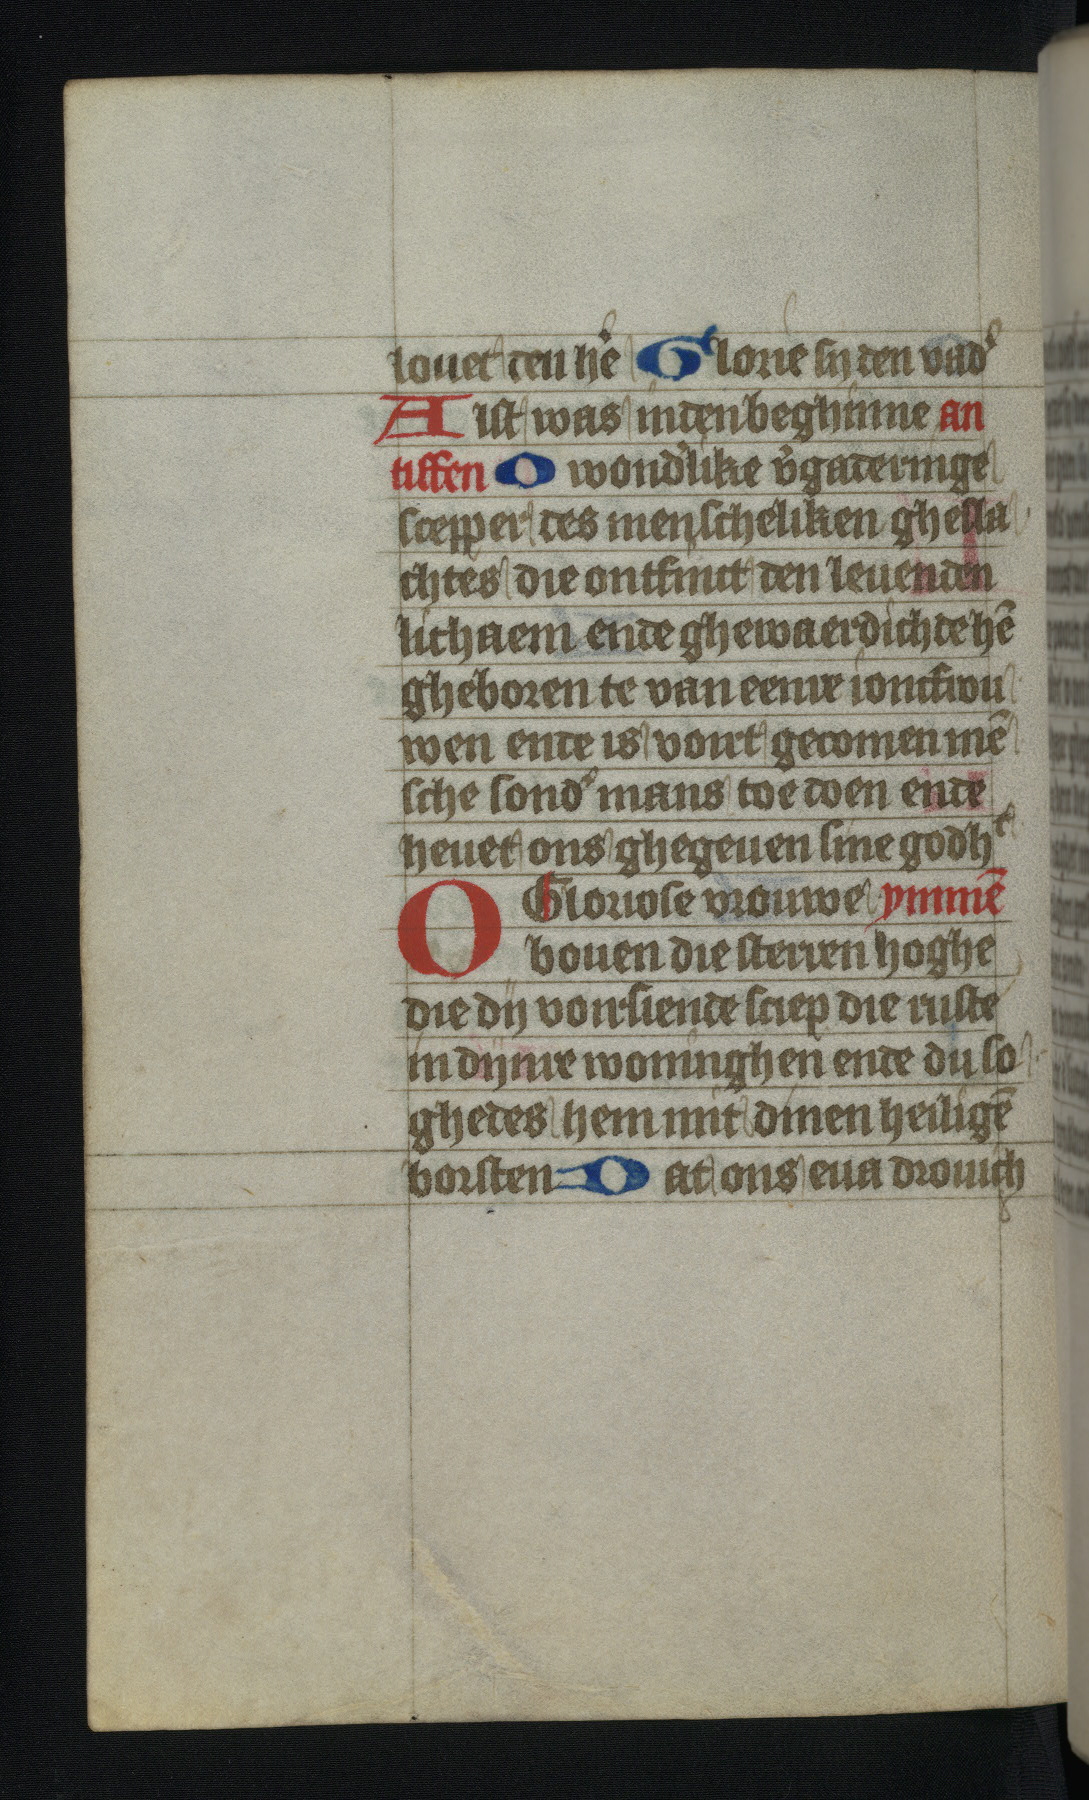 louet den hē Glorie sy den vad᷑
Alst was inden beghinne an
tiffen O wond᷑like v᷑gaderinge
scepper des menscheliken ghesla
chtes die ontfinct den leuenden
lichaem ende ghewaerdichde hē
gheboren te van eenre ioncfrou
wen ende is voirt gecomen mē
sche sond᷑ mans toe doen ende
heuet ons ghegeuen sine godhᵗ
O Gloriose vrouwe ymmē
bouen die sterren hoghe
die dij voirsiende sciep die ruste
in dijnre woninghen ende du so
ghedes hem mit dinen heiligē
borsten Dat ons eua drouich